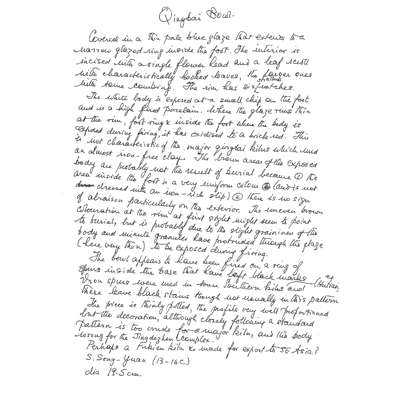 Qingbai Bowl.
Covered in a thin pale blue glaze that extends to a
narrow glazed ring inside the foot. The interior is
incised with a single flower head and a leaf scroll
with characteristically hooked leaves, the larger ones
with some combing. The rim has six notches.
The white body is exposed at a small chip on the foot
and is a high fired porcelain. Where the glaze runs thin
at the rim, foot ring & inside the foot where the body is
exposed during firing, it has oxidised to a brick red. This
is not characteristic of the major qingbai kilns which used
an almost iron-free clay. The brown areas of the exposed
body are probably not the result of burial because ① the
area inside the foot is a very uniform colour (and is not
dressed with an iron-rich slip) ② there is no sign
of abrasion particularly on the exterior. The uneven brown
colouration at the rim at first sight might seem to point
to burial, but is probably due to the slight graininess of the
body and minute granules have protruded through the glaze
(here very thin) to be exposed during firing.
The bowl appears to have been fired on a ring of
spurs inside the base that have left black marks
Iron spurs were used in some southern kilns and
these leave black stains though not usually in this pattern
The piece is thinly potted, the profile very well proportioned
but the decoration, although closely following a standard
pattern is too crude for a major kiln, and its body
wrong for the Jingdezhen complex.
Perhaps a Fukien kiln & made for export to SE Asia?
S. Song-Yuan (13-14C)
dia 19.5cm